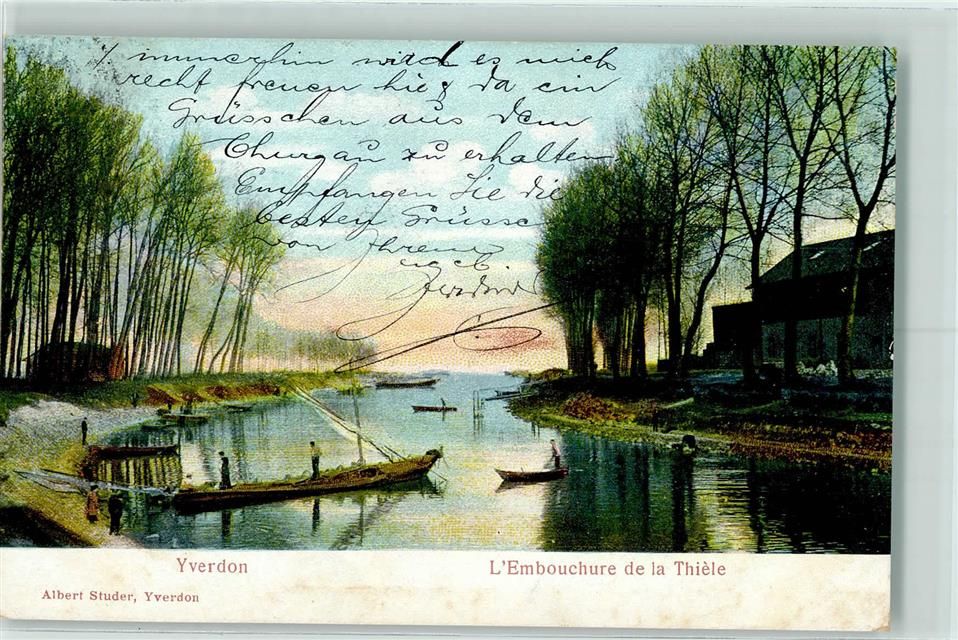 immerhin wird es mich
recht freuen hie & da ein
Grüsschen aus dem
Thurgau zu erhalten
Empfangen Sie die
besten Grüsse
von Ihrem
ergeb.
Yverdon
L'Embouchure de la Thièle
Albert Studer, Yverdon